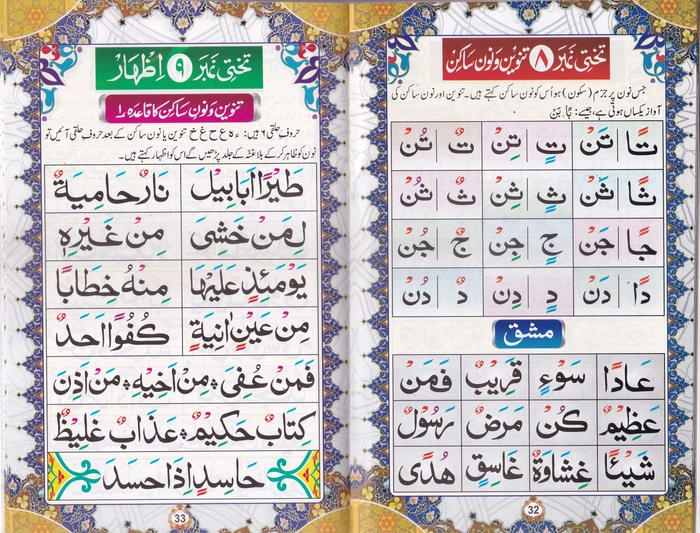 تختی نمبر ۸ تنوین و نون ساکن
جس نون پر جزم (سکون) ہو اُس کو نون ساکن کہتے ہیں۔ تنوین اور نون ساکن کی
آواز یکساں ہوتی ہے، جیسے:
تًا تَنْ تٍ تِنْ تٌ تُنْ
ثًا ثَنْ ثٍ ثِنْ ثٌ ثُنْ
جًا جَنْ جٍ جِنْ جٌ جُنْ
دًا دَنْ دٍ دِنْ دٌ دُنْ
مشق
عَادًا سَوْءٍ قَرِيْبٌ فَمَنْ
عَظِيْمٌ كُنْ مَرَضٌ رَسُوْلٌ
شَيْئًا غِشَاوَةٌ غَاسِقٍ هُدًى
32
تختی نمبر ۹ اِظہار
تنوین و نونِ ساکن کا قاعدہ ۱
حروفِ حلقی ۶ ہیں: ء ہ ع ح غ خ تنوین یا نون ساکن کے بعد حروفِ حلقی آئیں تو
نون کو ظاہر کر کے بلا غنّہ کے جلد پڑھیں گے اس کو اظہار کہتے ہیں۔
طَيْرًا اَبَابِيْلَ نَارٌ حَامِيَةٌ
لِمَنْ خَشِىَ مِنْ غَيْرِهٖ
يَوْمَئِذٍ عَلَيْهَا مِنْهُ خِطَابًا
مِنْ عَيْنٍ اٰنِيَةٍ كُفُوًا اَحَدٌ
فَمَنْ عُفِىَ ۔ مِنْ اَخِيْهِ ۔ مَنْ اَذِنَ
كِتَابٌ حَكِيْمٌ ۔ عَذَابٌ غَلِيْظٌ
حَاسِدٍ اِذَا حَسَدَ
33